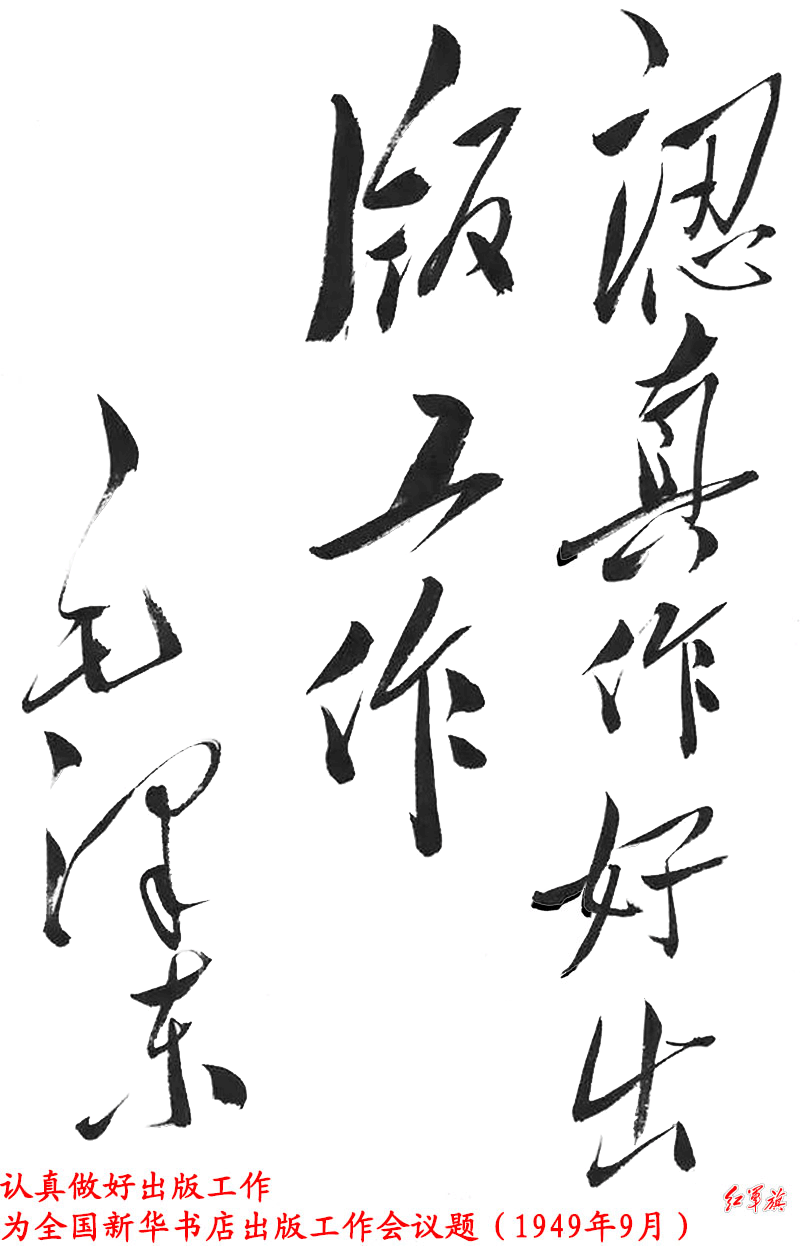 認真作好出
版工作
毛泽东
认真做好出版工作
为全国新华书店出版工作会议题（1949年9月）
红军旗